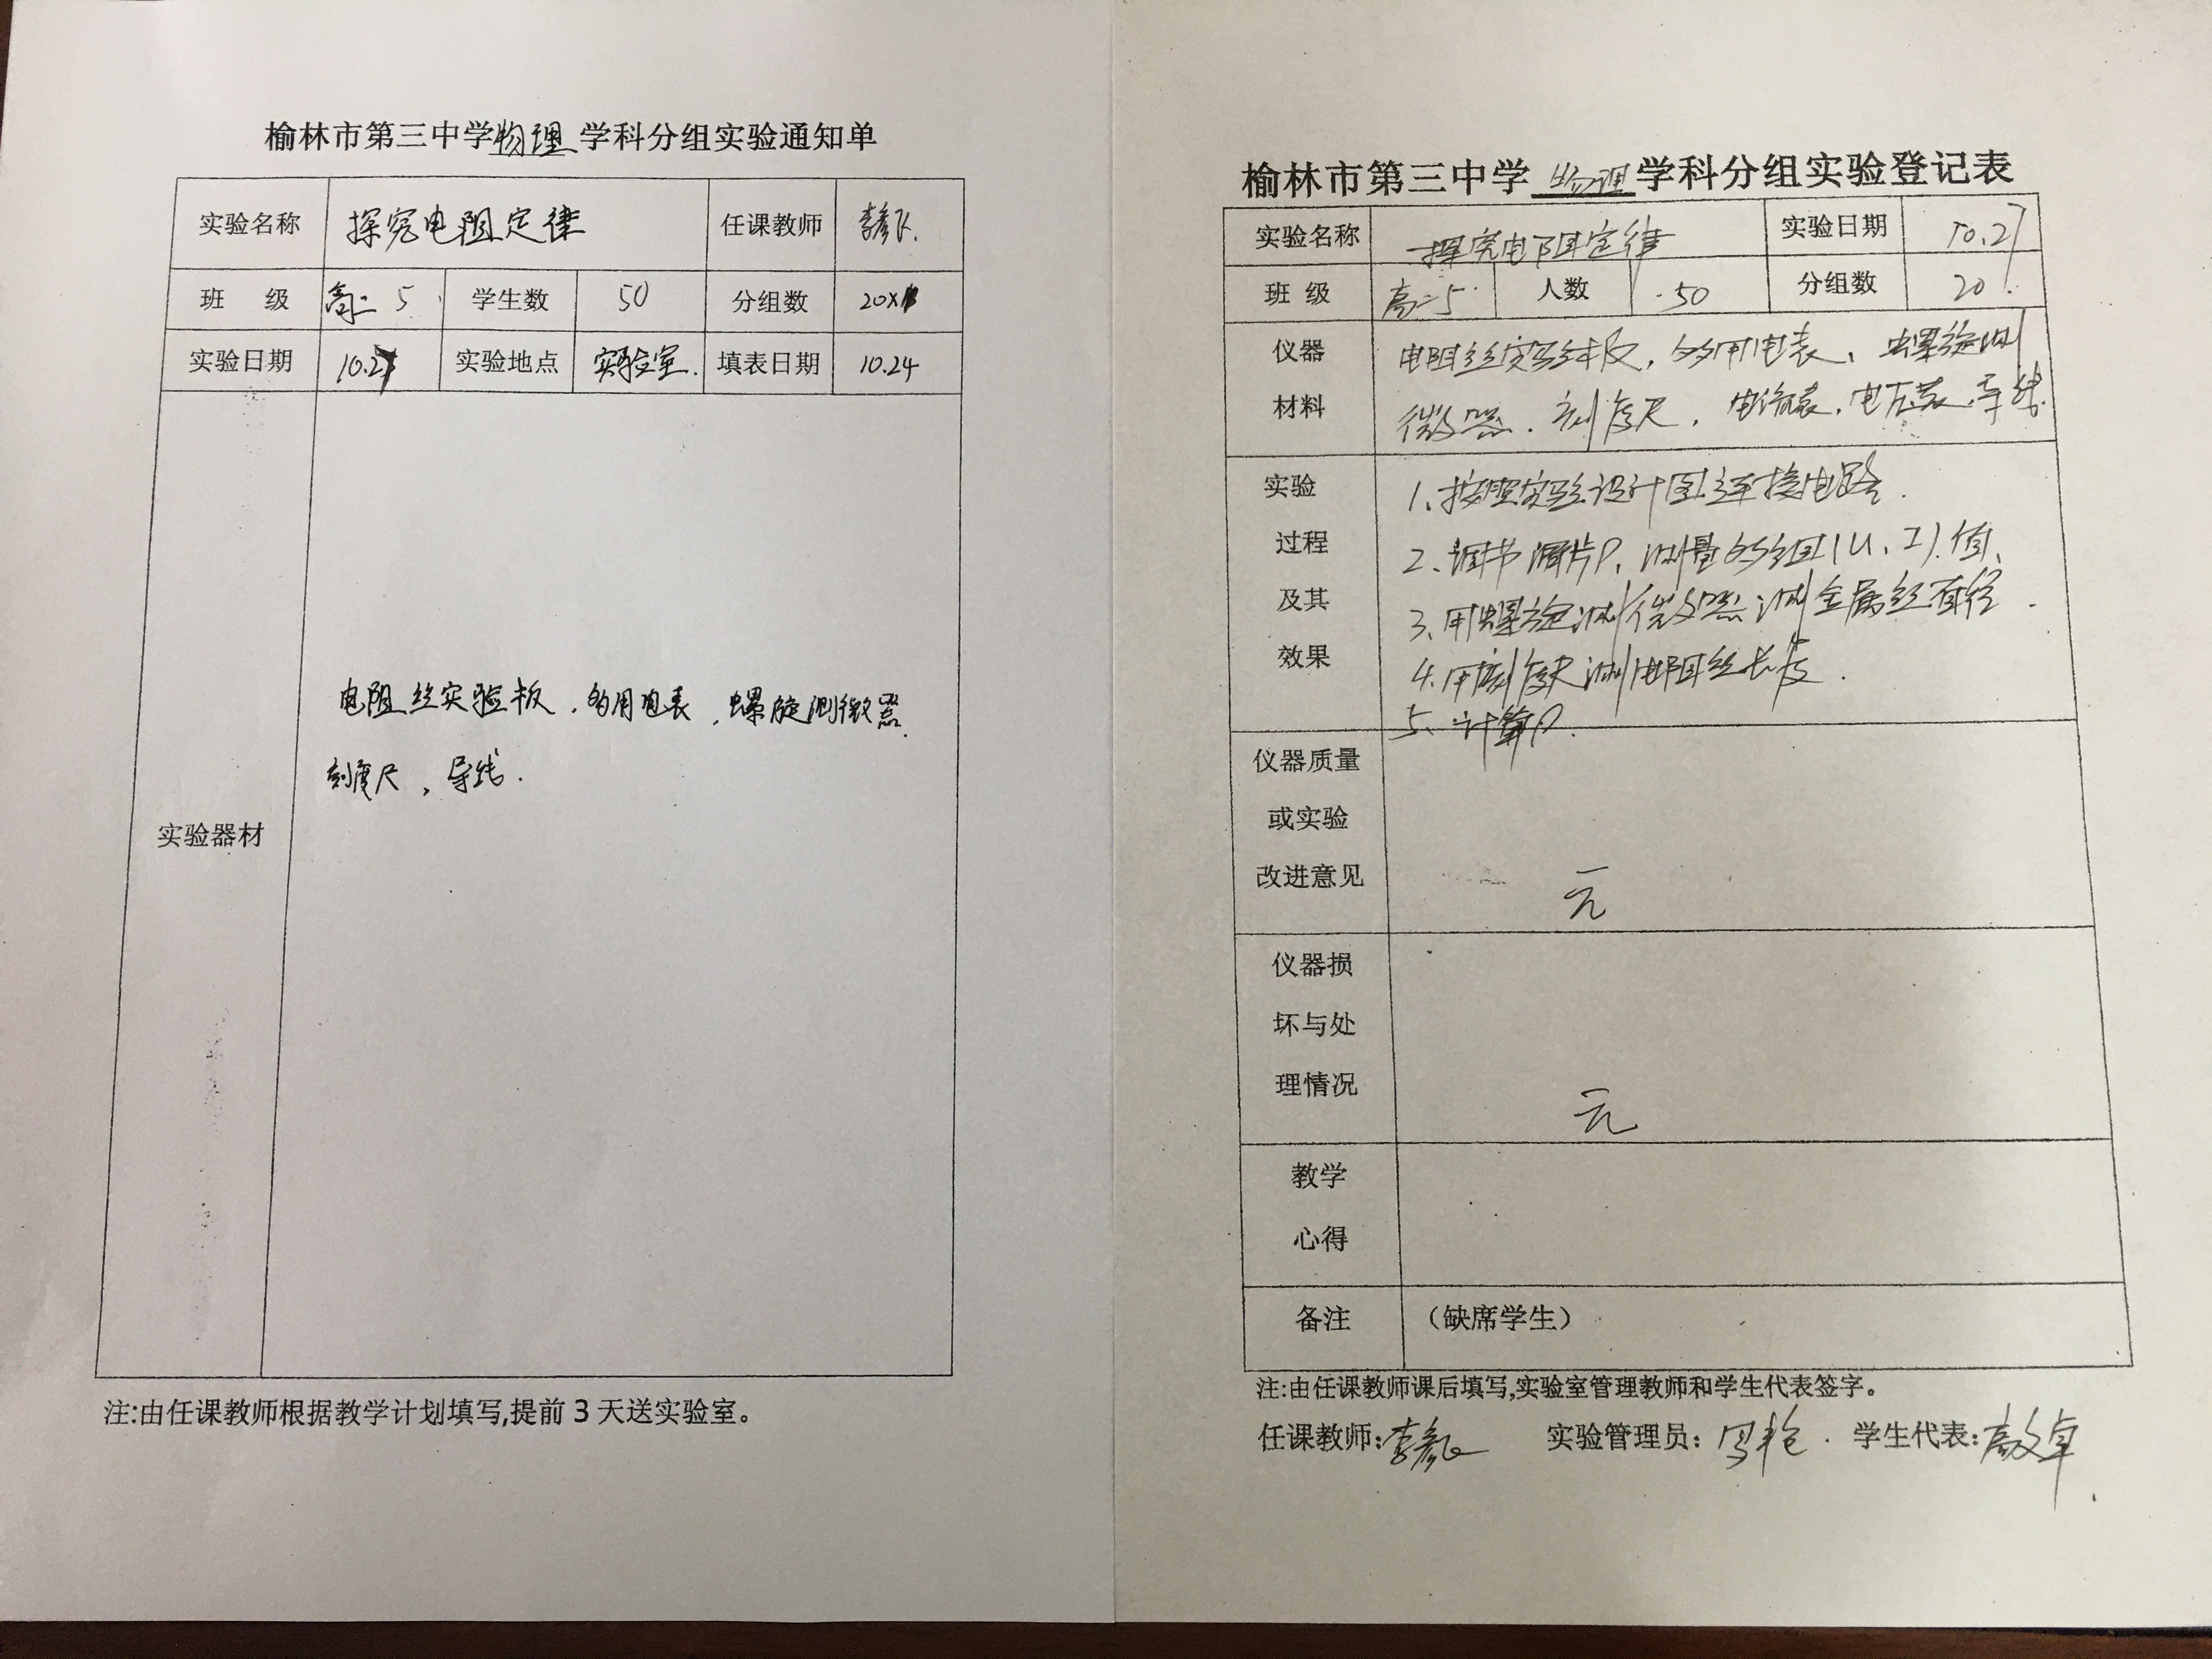 榆林市第三中学物理学科分组实验通知单
实验名称 探究电阻定律 任课教师 李彦飞
班 级 高二 5 学生数 50 分组数 20×1
实验日期 10.27 实验地点 实验室. 填表日期 10.24
实验器材
电阻丝实验板,多用电表,螺旋测微器.
刻度尺,导线.
注:由任课教师根据教学计划填写,提前3天送实验室。
榆林市第三中学物理学科分组实验登记表
实验名称 探究电阻定律 实验日期 10.27
班 级 高二5 人数 50 分组数 20
仪器
材料
电阻丝实验板,多用电表,螺旋测
微器.刻度尺,电流表,电压表,导线.
实验
过程
及其
效果
1、按照实验设计图连接电路.
2、调节滑片P、测量多组(U、I)值、
3、用螺旋测微器测金属丝直径.
4.用刻度尺测电阻丝长度.
5、计算ρ.
仪器质量
或实验
改进意见
无
仪器损
坏与处
理情况
无
教学
心得
备注 (缺席学生)
注:由任课教师课后填写,实验室管理教师和学生代表签字。
任课教师: 实验管理员: 学生代表:高文卓